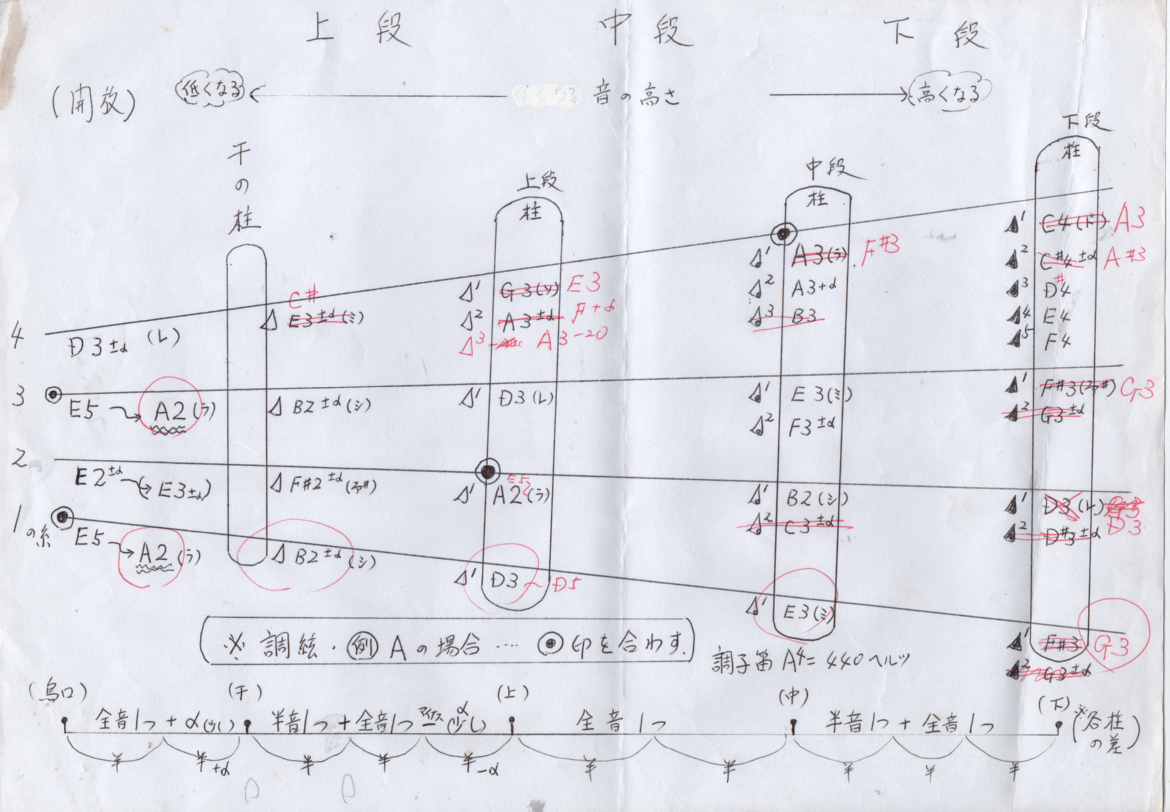 上段 中段 下段
(開放) 低くなる ← 音の高さ → 高くなる
干の柱
上段
柱
中段
柱
下段
柱
4 D3±α (レ)
C#
E3±α(ミ)
Δ1 G3(ソ) E3
Δ2 A3±α F+α
Δ3 A3-20
Δ1 A3(ラ) F#3
Δ2 A3+α
Δ3 B3
Δ1 C4(ド) A3
Δ2 C#4±α A#3
Δ3 D#4
Δ4 E4
Δ5 F4
3 E5 → A2(ラ)
Δ B2±α(シ)
Δ1 D3(レ)
Δ1 E3(ミ)
Δ2 F3±α
Δ1 F#3(ファ#) G3
Δ2 G3±α
2 E2±α → (E3±α)
Δ F#2±α(ファ#)
Δ1 A2(ラ)
Δ1 B2(シ)
Δ2 C3±α
Δ1 D3(レ)
D3
Δ2 D#3±α
1の糸 E5 → A2(ラ)
Δ B2±α(シ)
Δ1 D3 ~ D5
Δ1 E3(ミ)
Δ1 F#3 G3
Δ2 G3±α
※ 調絃・例 Aの場合‥‥ ◉印を合わす.
調子笛 A4=440ヘルツ
(鳥口) (干) (上) (中) (下)
全音1つ+α(少し) 半音1つ+全音1つマイナスα少し 全音1つ 半音1つ+全音1つ (※各柱の差)
半 半+α 半 半 半-α 半 半 半 半 半